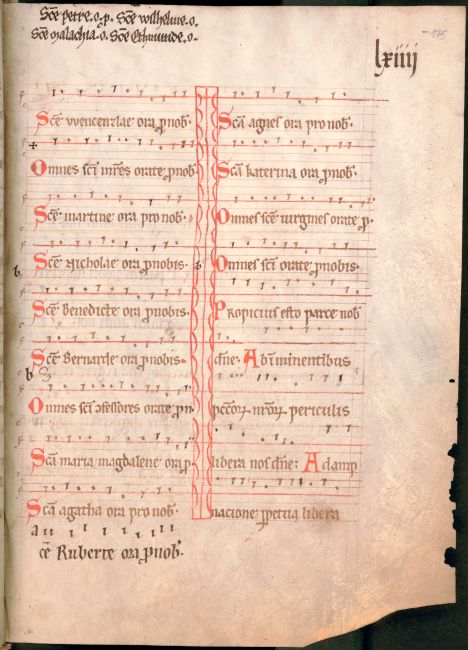 Sce petre.o.p. Sce wilhelme.o.
Sce malachia.o. Sce Ethmunde.o.
175
lxiiij
Sce wencezlae ora pnob
Omnes sci mres orate pnob
Sce martine ora pro nob.
Sce Nicholae ora pnobis.
Sce Benedicte ora pnobis.
Sce Bernarde ora pnobis.
Omnes sci ɔfessores orate pn
Sca maria magdalene ora p
Sca agatha ora pro nob.
ce Ruberte ora pnob.
Sca agnes ora pro nob.
Sca katerina ora pnob.
Omnes sce uirgines orate p.
Omnes sci orate pnobis.
Propicius esto parce nob
dne. Ab iminentibus
pccorꝝ nrorꝝ periculis
libera nos dne. A damp
nacione ppetua libera